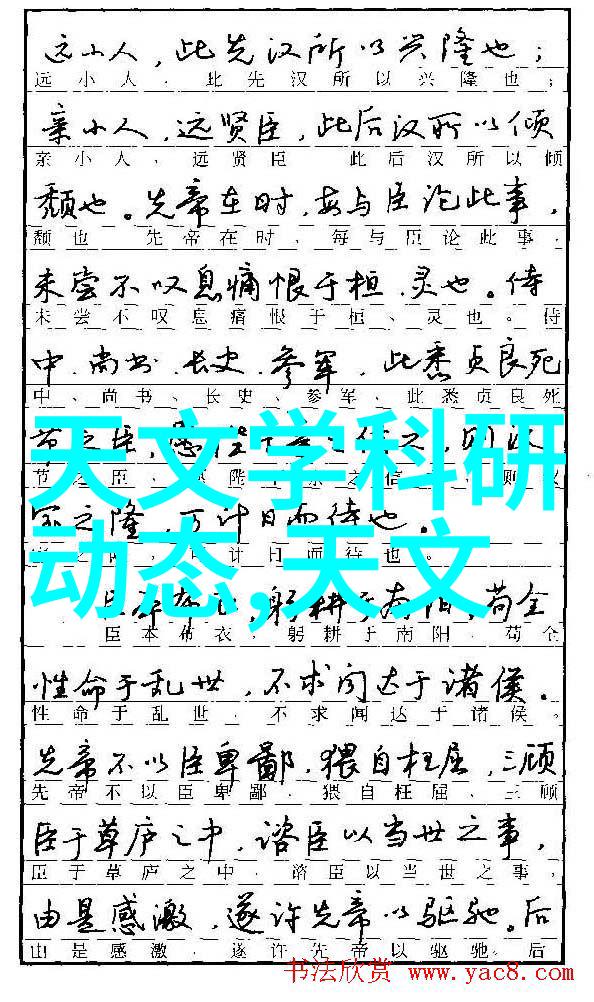 远小人，此先汉所以兴隆也；
远小人，此先汉所以兴隆也；
亲小人，远贤臣，此后汉所以倾
亲小人、远贤臣 此后汉所以倾
颓也。先帝在时，每与臣论此事，
颓也 先帝在时，每与臣论此事，
未尝不叹息痛恨于桓、灵也。侍
未尝不叹息痛恨于桓、灵也。侍
中、尚书、长史、参军，此悉贞良死
中、尚书、长史、参军、此悉贞良死
节之臣，
节之臣、 陛 之信 则汉
天文学科研
家之隆，可计日而待也。
之 计日而待也。
动态,天文
躬耕于南阳，苟全
臣本布衣，躬耕于南阳，苟全
性命于乱世，不求闻达于诸侯。
性命于乱世，不求闻达于诸侯。
先帝不以臣卑鄙，猥自枉屈，三顾
先帝不以臣卑鄙，猥自枉屈、三顾
臣于草庐之中，谘臣以当世之事，
臣于草庐之中，谘臣以当世之事，
由是感激，遂许先帝以驱驰。后
由是感激，遂许先帝以驱驰。后
书法欣赏 www.yac8.com